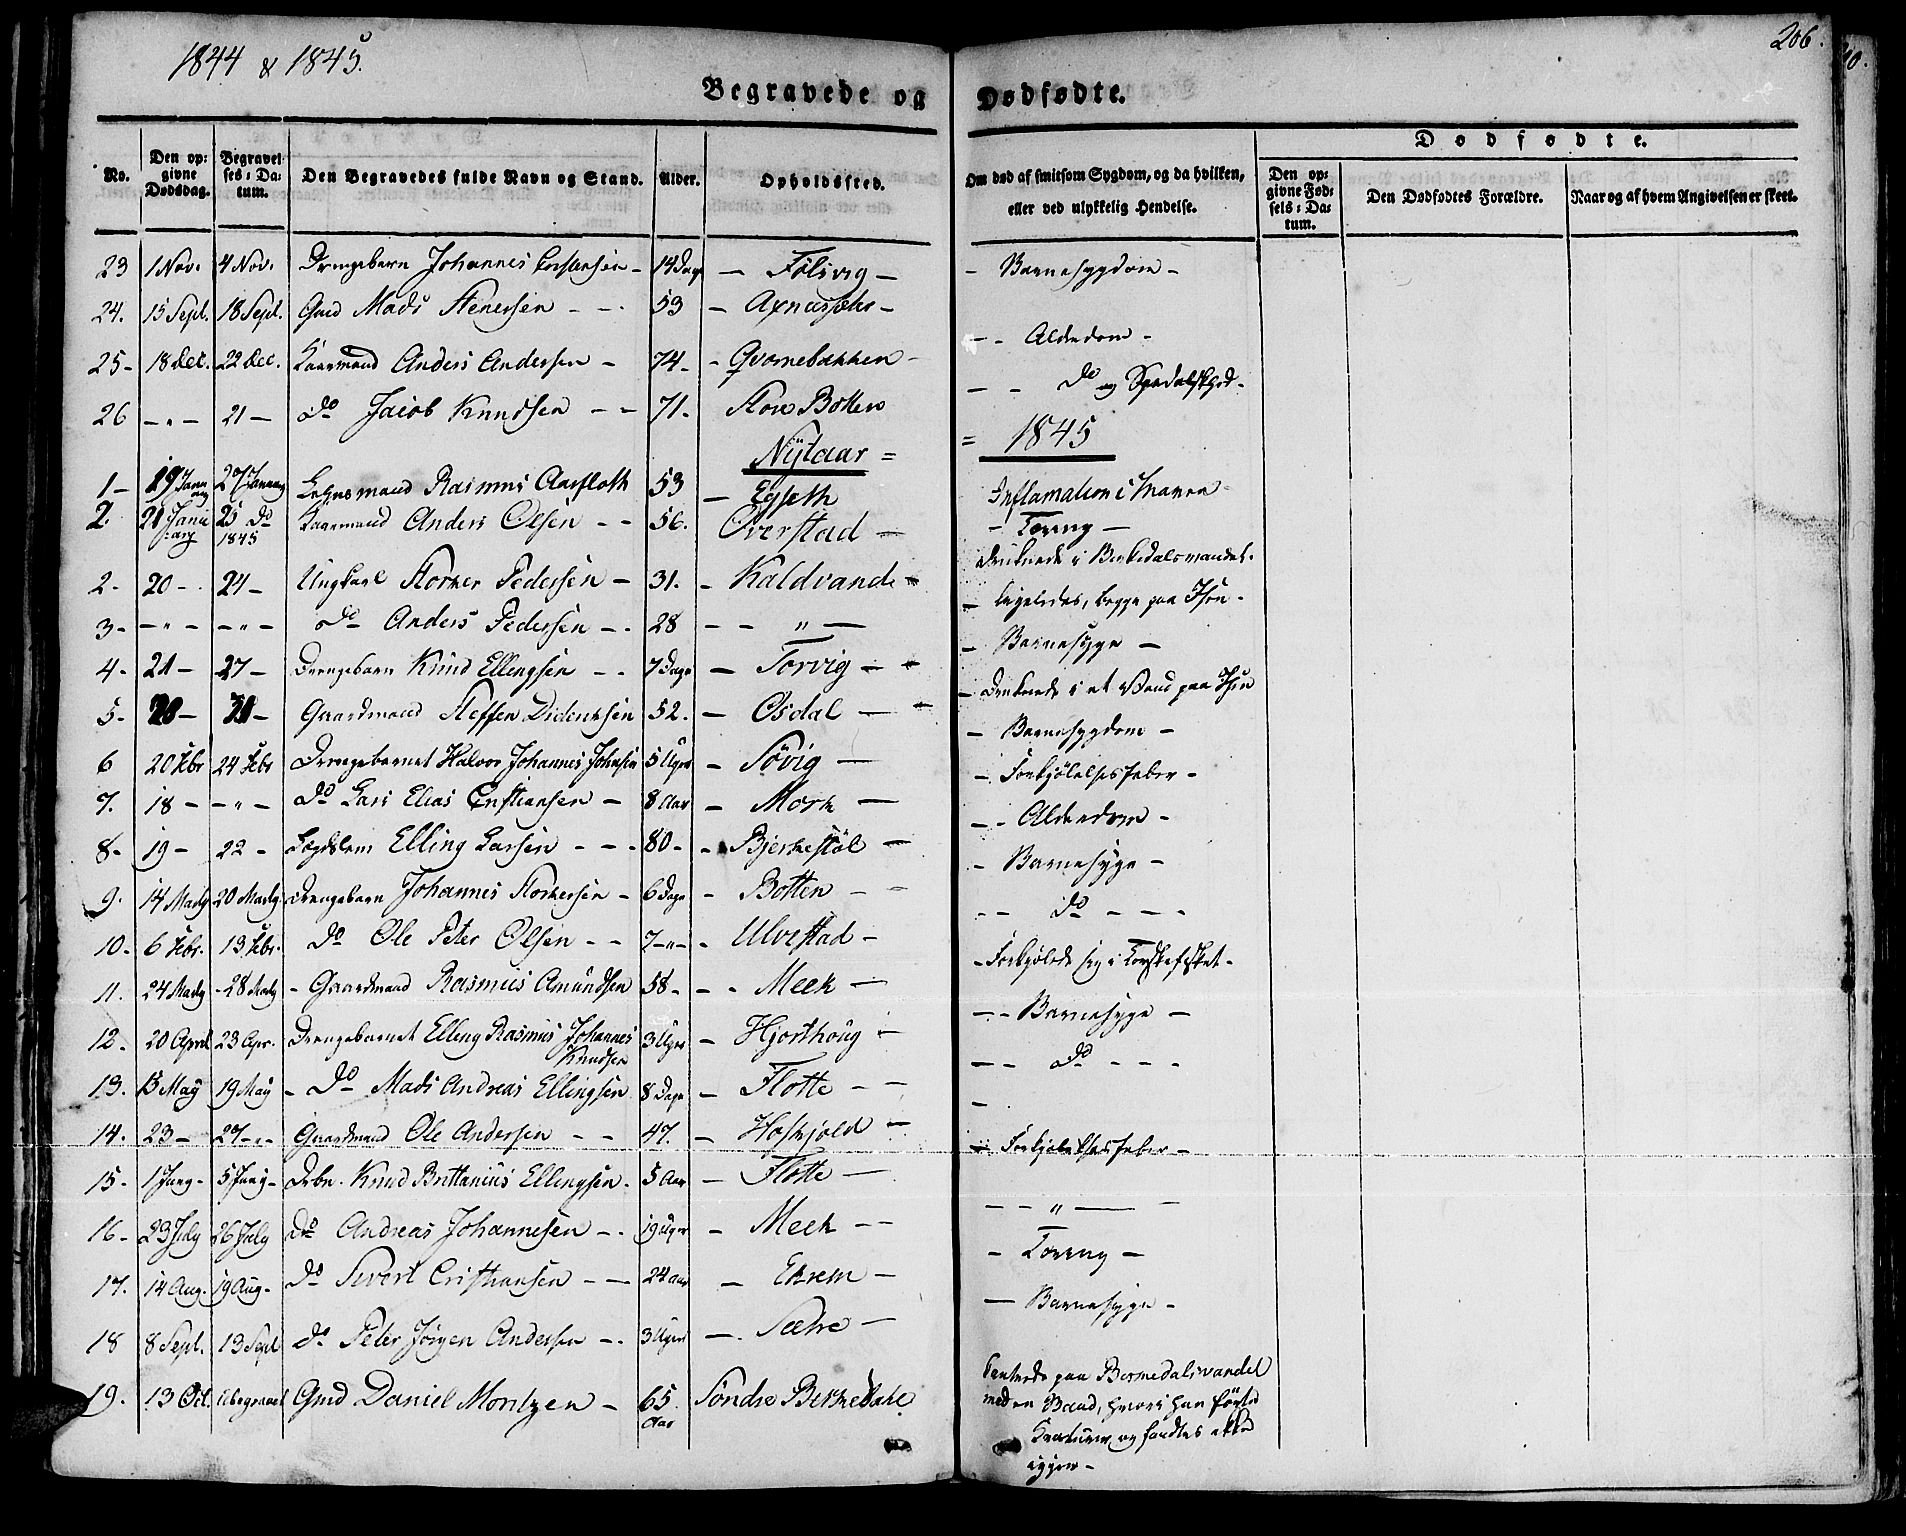 1844 & 1845.
206.
Begravede og Dødfødte.
No. Den opgivne Dødsdag. Begravelses-Datum. Den Begravedes fulde Navn og Stand. Alder. Opholdssted. Om død af smitsom Sygdom, og da hvilken, eller ved ulykkelig Hendelse.
Dødfødte.
Den opgivne Fødsels-Datum. Den Dødfødtes Forældre. Naar og af hvem Angivelsen er skeet.
23 1 Nov. 4 Nov. Drengebarn Johannes 14 Dage Følsvig - Barnesygdom -
24. 15 Sept. 18 Sept. Gmd Mads Stenersen - - 53 -
- - Alderdom -
25- 18 Dec. 22 Dec. Kaarmand Anders Andersen - 74 - - Qvornebakken -
- - Do og Spedalskhed -
26 - " - 21 - do Jacob Knudsen - - 71. Store Botten
Nÿtaar = = 1845
1 - 19 Januar 27 Januar Lensmand Rasmus Aarfloth 53 - Egseth Inflamation i Maven -
2. 21 Januar 25 do 1845 Kaarmand Anders Olsen - - 56. Overstad - - Tæring -
2- 20 - 24 - Ungkarl Storker Pedersen - 31. - Kaldvand - druknede i Birkedalsvandet.
3- - " - - " - do Anders Pedersen - . 28 - - " - - ligeledes, begge paa Isen -
4- 21 - 27 - Drengebarn Knud Ellingsen - - 7 Dage - Torvig - - Barnesyge -
5- 28 - 31 - Gaardmand Steffen Diderksen 52. - Osdal - - druknede i et Vand paa Isen
6 20 Febr 24 Febr Drengebarnet Halvor Johannes Johnsen 5 Uger - Søvig - - Barnesygdom -
7. 18 - - " - do Lars Elias Cristiansen - 8 Aar - Mork - - Forkjølelsesfeber -
8- 19 - 22 - Lægdslem Elling Larsen - - - 80 - - Bjerkestøl - - - Alderdom -
9. 14 Marty 20 Marty Drengebarn Johannes Storkersen - 6 Dage - Botten - - - Barnesyge -
10- 6 Febr. 13 Febr. do Ole Peter Olsen - - 7 - " - - Ulvestad - - - do - - -
11. 24 Marty - 28 Marty - Gaardmand Rasmus Amundsen 58 - - - Meek - - Forkjølede sig i Torskefisket -
12. 20 April 23 Apr. Drengebarnet Elling Rasmus Johannes Knudsen 3 Uger - Hjorthoug - - - Barnesyge -
13. 13 May 19 May - do Mads Andreas Ellingsen 8 Dage - Flotte - - - - do - - -
14. 23 - 27 - - Gaardmand Ole Andersen - - 47. - Haskjold - -
15- 1 Juny - 5 Juny - Drbn. Knud Brittanius Ellingsen. 5 Aar - Flotte - - Forkjølelsesfeber -
16- 23 July 26 July do Andreas Johannesen - . 19 Uger - Meek - - - - " - -
17. 14 Aug. 19 Aug - do Sivert Cristiansen - - 24 Aar - Ekrem - - Tæring -
18 8 Sept. 13 Sept do Peter Jørgen Andersen - . 3 Uger - . Sætre - - Barnesyge -
19. 13 Oct. Ubegravet Gmd Daniel Moritzen - 65. Aar Søndre Birkedahl paa Birkedalsvandet
med en Baad, hvori han førte
Kreaturer og fandtes ikke
igjen -